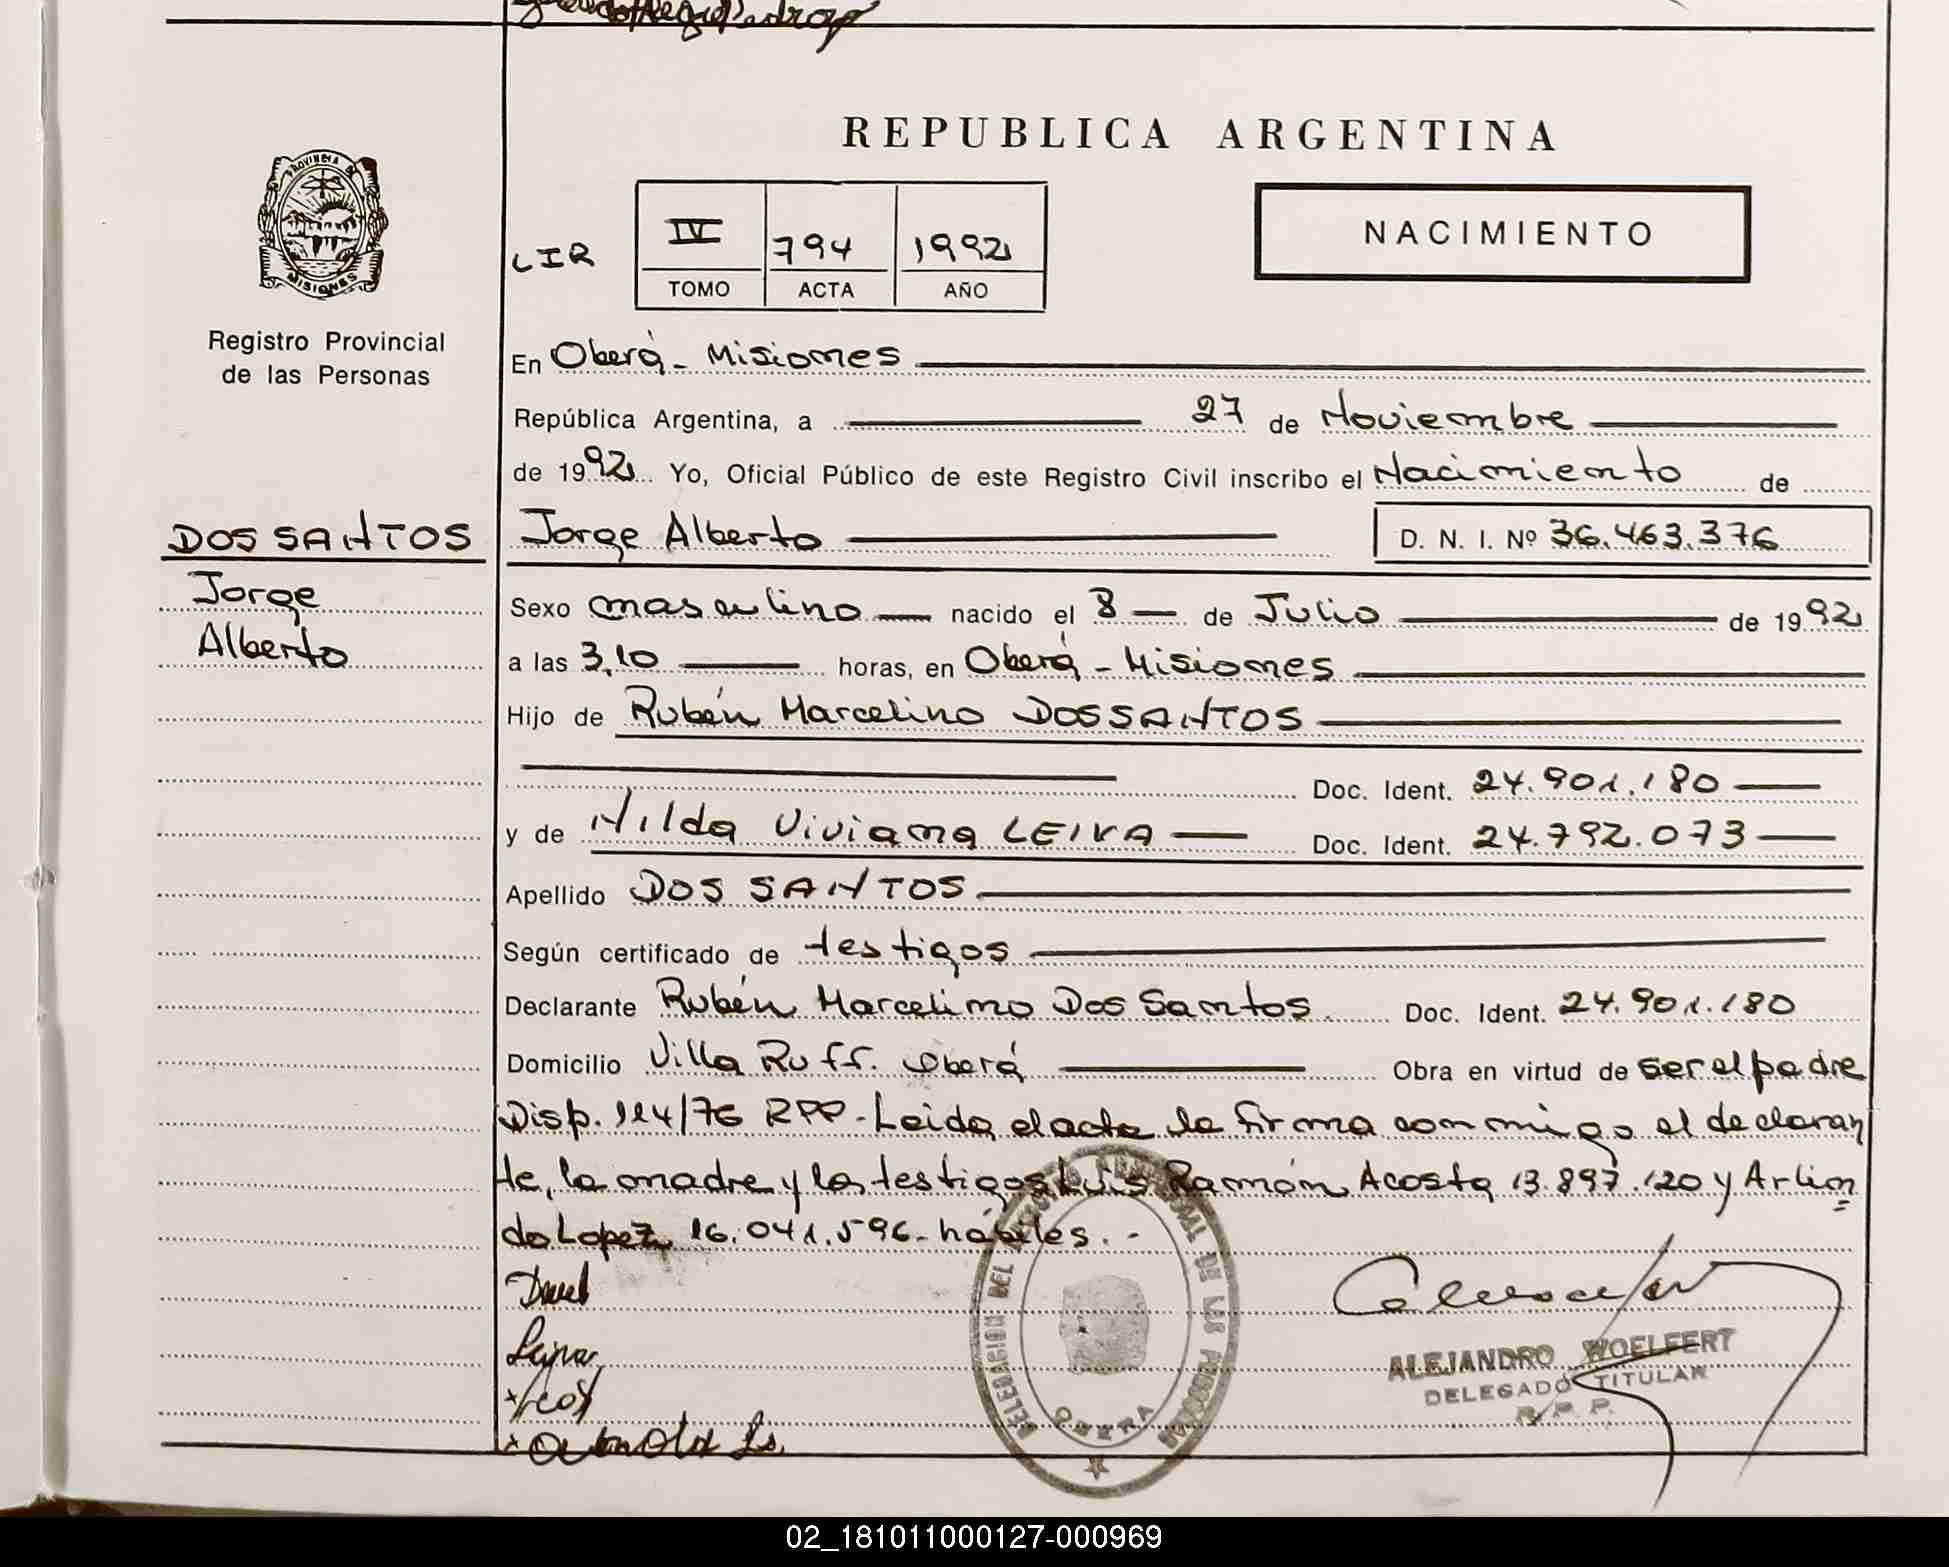 REPUBLICA ARGENTINA
PROVINCIA DE MISIONES
NACIMIENTO
LIR
IV 794 1992
TOMO ACTA AÑO
Registro Provincial
de las Personas
En Oberá - Misiones
República Argentina, a 27 de Noviembre
de 1992 Yo, Oficial Público de este Registro Civil inscribo el Nacimiento de
DOS SANTOS
Jorge
Alberto
Jorge Alberto D. N. I. Nº 36.463.376
Sexo masculino nacido el 8 de Julio de 1992
a las 3,10 horas, en Oberá - Misiones
Hijo de Rubén Marcelino DOS SANTOS
Doc. Ident. 24.901.180
y de Hilda Viviana LEIVA Doc. Ident. 24.792.073
Apellido DOS SANTOS
Según certificado de testigos
Declarante Rubén Marcelino Dos Santos Doc. Ident. 24.901.180
Domicilio Villa Ruff. Oberá Obra en virtud de ser el padre
Disp. 124/76 RPP - Leida el acta la firma conmigo el declaran
te, la madre y los testigos Luis Ramón Acosta 13.897.120 y Arlin
do Lopez 16.041.596 - hábiles. -
DELEGACION DEL REGISTRO PROVINCIAL DE LAS PERSONAS
OBERA
Leiva
ALEJANDRO WOELFERT
DELEGADO TITULAR
R. P. P.
02_181011000127-000969